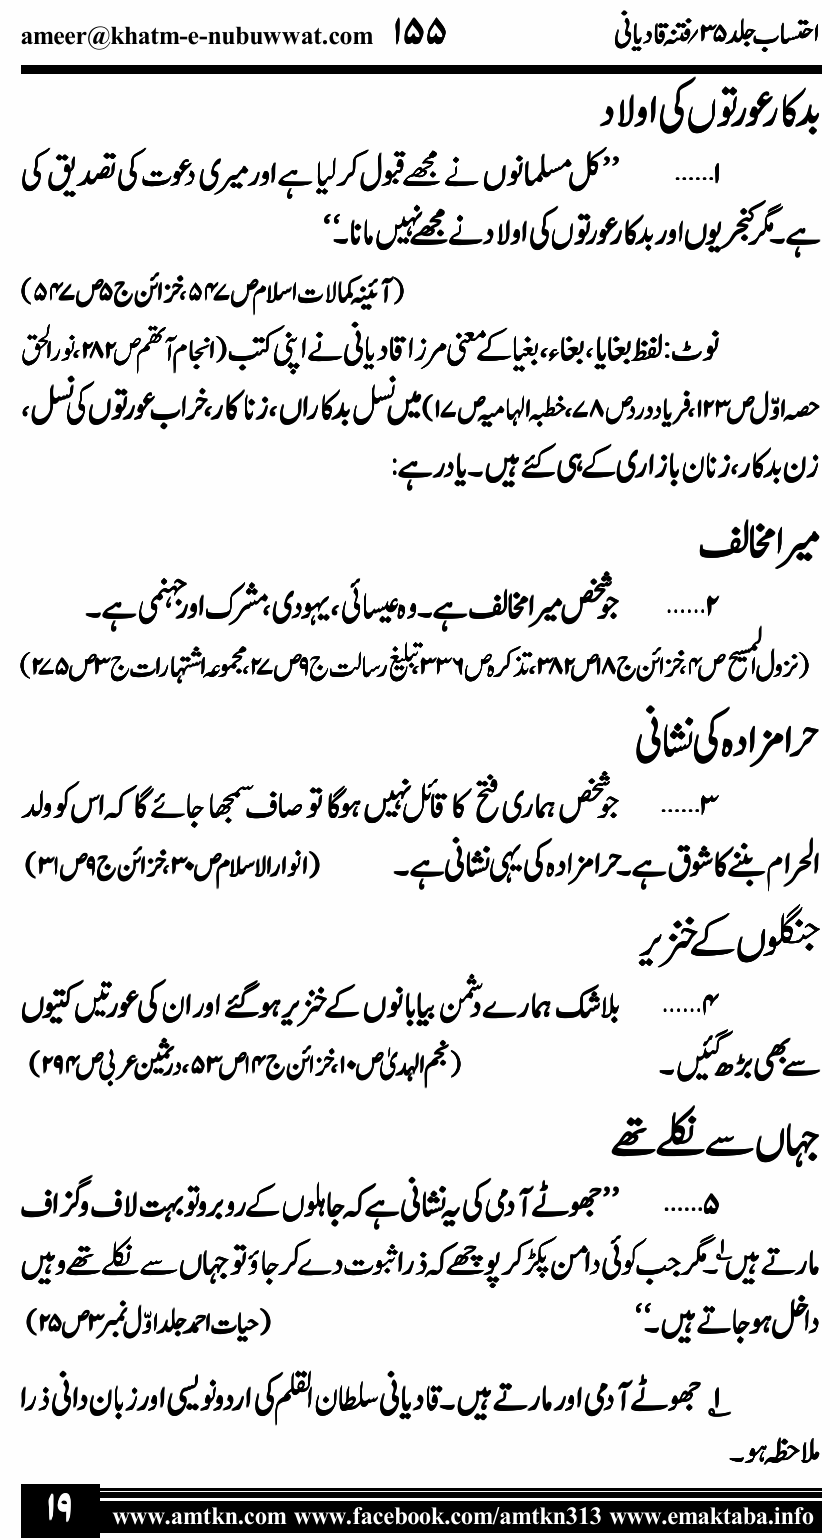 احتساب جلد ۳۵؍فتنہ قادیانی ۱۵۵ ameer@khatm-e-nubuwwat.com
بدکار عورتوں کی اولاد
۱...... ’’کل مسلمانوں نے مجھے قبول کرلیا ہے اور میری دعوت کی تصدیق کی
ہے۔ مگر کنجریوں اور بدکار عورتوں کی اولاد نے مجھے نہیں مانا۔‘‘
(آئینہ کمالات اسلام ص۵۴۷، خزائن ج۵ص۵۴۷)
نوٹ: لفظ بغایا، بغاء، بغیا کے معنی مرزا قادیانی نے اپنی کتب (انجام آتھم ص۲۸۲، نور الحق
حصہ اوّل ص۱۲۳، فریاد درد ص۷۸، خطبہ الہامیہ ص۱۷) میں نسل بدکاراں، زناکار، خراب عورتوں کی نسل،
زن بدکار، زنان بازاری کے ہی کئے ہیں۔ یاد رہے:
میرا مخالف
۲...... جو شخص میرا مخالف ہے۔ وہ عیسائی، یہودی، مشرک اور جہنمی ہے۔
(نزول المسیح ص۴، خزائن ج۱۸ص۳۸۲، تذکرہ ص۳۳۶، تبلیغ رسالت ج۹ص۲۷، مجموعہ اشتہارات ج۳ص۲۷۵)
حرامزادہ کی نشانی
۳...... جو شخص ہماری فتح کا قائل نہیں ہوگا تو صاف سمجھا جائے گا کہ اس کو ولد
الحرام بننے کا شوق ہے۔ حرامزادہ کی یہی نشانی ہے۔ (انوار الاسلام ص۳۰، خزائن ج۹ص۳۱)
جنگلوں کے خنزیر
۴...... بلاشک ہمارے دشمن بیابانوں کے خنزیر ہوگئے اور ان کی عورتیں کتیوں
سے بھی بڑھ گئیں۔ (نجم الہدیٰ ص۱۰، خزائن ج۱۴ص۵۳، درثمین عربی ص۲۹۴)
جہاں سے نکلے تھے
۵...... ’’جھوٹے آدمی کی یہ نشانی ہے کہ جاہلوں کے روبرو تو بہت لاف وگزاف
مارتے ہیں۱؎۔ مگر جب کوئی دامن پکڑ کر پوچھے کہ ذرا ثبوت دے کر جاؤ تو جہاں سے نکلے تھے وہیں
داخل ہو جاتے ہیں۔‘‘ (حیات احمد جلد اوّل نمبر۳ص۲۵)
۱؎ جھوٹے آدمی اور مارتے ہیں۔ قادیانی سلطان القلم کی اردو نویسی اور زبان دانی ذرا
ملاحظہ ہو۔
۱۹ www.amtkn.com www.facebook.com/amtkn313 www.emaktaba.info